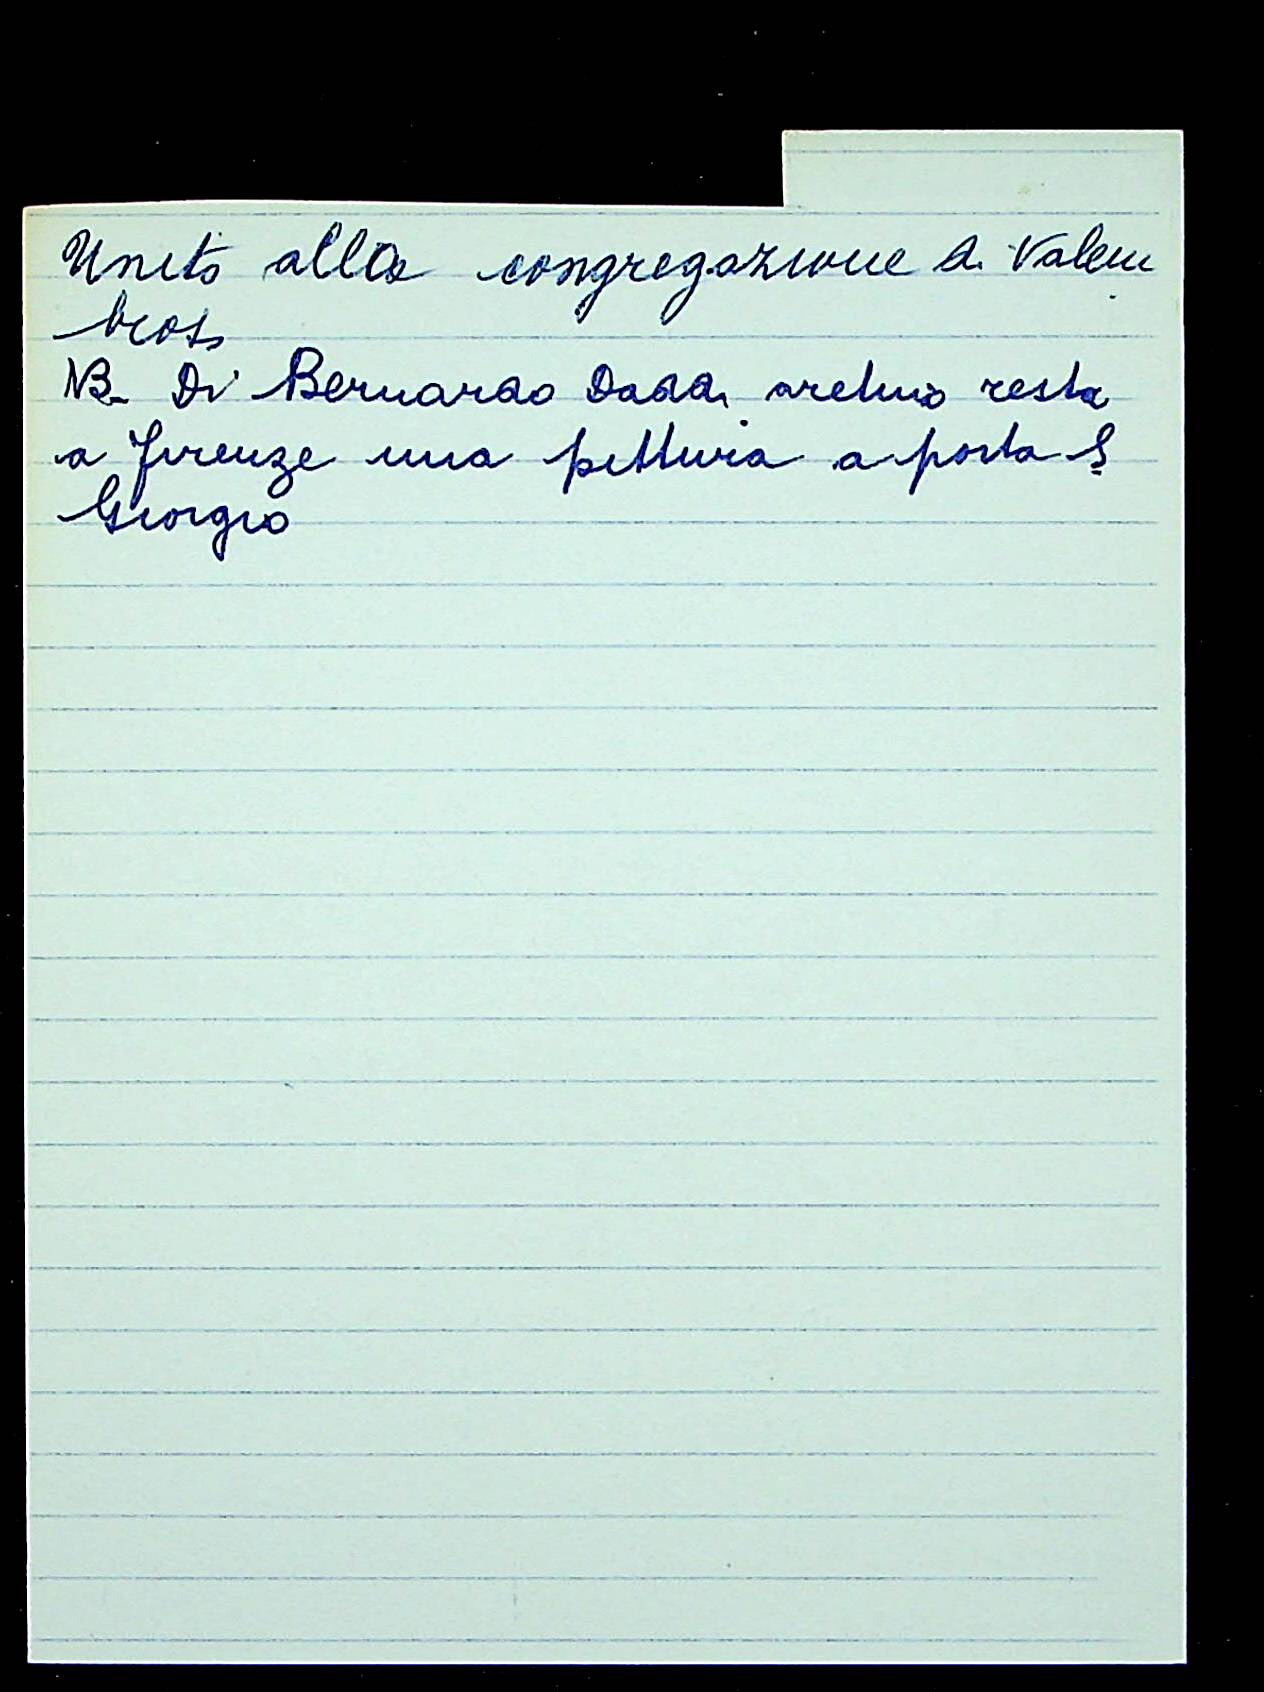 Unito alla congregazione di Valem
bros.
NB. Di Bernardo Daddi aretino resta
a Firenze una pittura a porta S
Giorgio